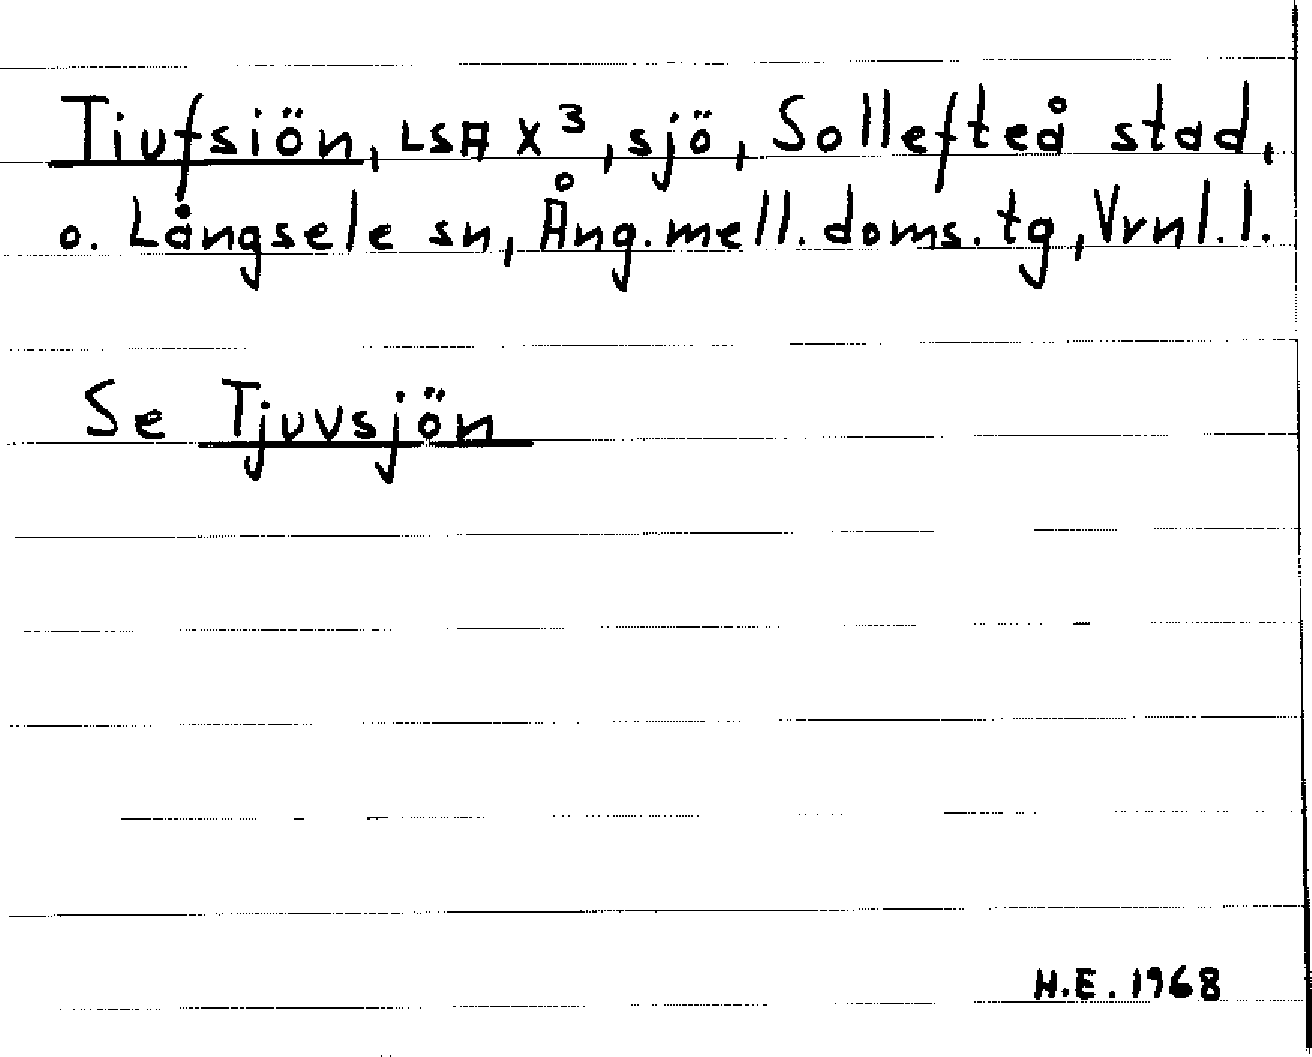 Tiufsiön, LSA X³, sjö, Sollefteå stad,
o. Långsele sn, Ång.mell.doms.tg, Vrnl.l.
Se Tjuvsjön
H.E. 1968